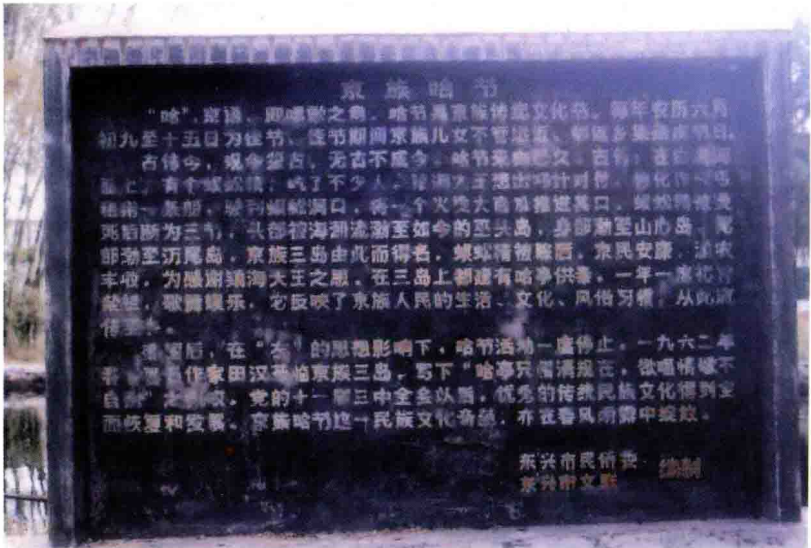 京族哈节
“哈”，京语，即唱歌之意，哈节是京族传统文化节。每年农历六月
初九至十五日为佳节，佳节期间京族儿女不管远近，都回乡集欢度节日。
古传今，观今鉴古，无古不成今。哈节来由已久。古传：在
上，有个蜈蚣精，吃了不少人，镇海大王想出巧计对付，
租用一条船，驶到蜈蚣洞口，将一个火烫大南瓜推进其口，蜈蚣精
死后断为三节，头部被海潮流渤至如今的巫头岛，身部渤至山心岛，尾
部渤至沥尾岛，京族三岛由此而得名，蜈蚣精被除后，京民安康，渔农
丰收，为感谢镇海大王之恩，在三岛上都建有哈亭供奉，一年一度
歌舞娱乐，它反映了京族人民的生活、文化、风俗习惯，从此流
传至今。
后，在“左”的思想影响下，哈节活动一度停止。一九六二年
作家田汉登临京族三岛，写下“哈亭只惜清规在，欲唱情歌不
自由”之诗。党的十一届三中全会以后，优秀的传统民族文化得到全
面恢复和发展。京族哈节这一民族文化奇葩，亦在春风雨露中绽放。
东兴市民侨委
东兴市文联 编制